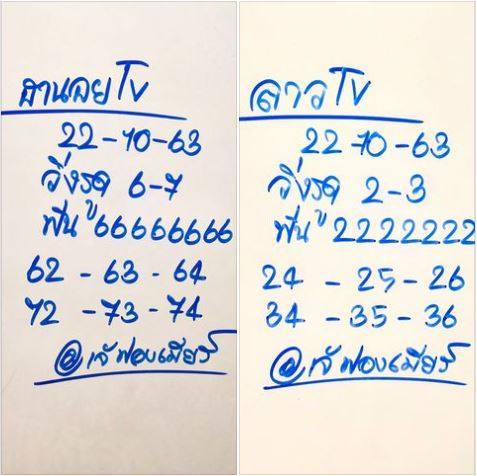 ฮานอย TV
22-10-63
วิ่งรูด 6-7
ฟัน 66666666
62 - 63 - 64
72 - 73 - 74
@เจ๊ฟองเบียร์
ลาว TV
22 10-63
วิ่งรูด 2-3
ฟัน 2222222
24 - 25 - 26
34 - 35 - 36
@เจ๊ฟองเบียร์